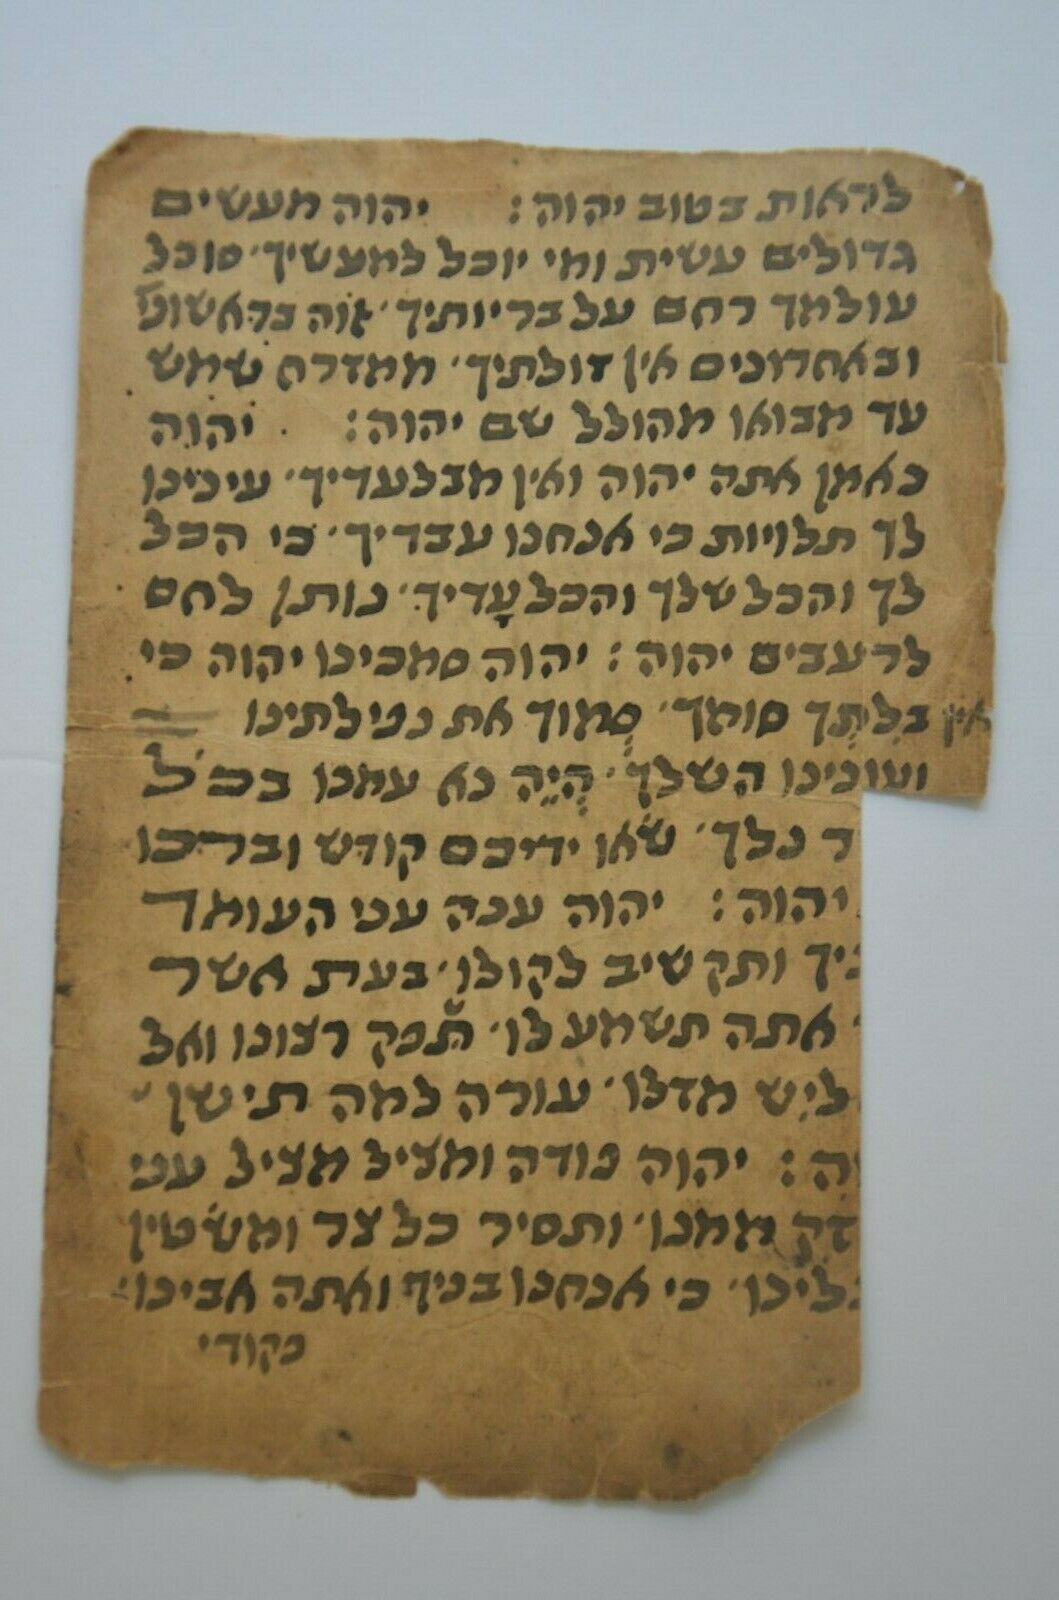 לראות בטוב יהוה: יהוה מעשים
גדולים עשית ומי יוכל למעשיך׳ סובל
עולמך רחם על בריותיך׳ אתה בראשוני׳
ובאחרונים אין זולתיך׳ ממזרח שמש
עד מבואו מהולל שם יהוה: יהוה
נאמן אתה יהוה ואין מבלעדיך׳ עינינו
לך תלויות כי אנחנו עבדיך׳ כי הכל
לך והכל שלך והכל עָדיך׳ נותן לחם
לרעבים יהוה: יהוה סמכינו יהוה כי
אין בִלְתְּך סומך׳ סְמוך את נפילתינו
ועונינו השלך׳ הְיֵה נא עמנו בכ׳ל
ר נלך׳ שאו ידיכם קודש וברכו
יהוה: יהוה ענה עני העומד
ניך ותקשיב לקולו׳ בעת אשר
אתה תשמע לו׳ תפק רצונו ואל
ליש מדלו׳ עורה למה תישן
ה: יהוה פודה ומציל מציל עני
זק ממנו׳ ותסיר כל צר ומשטין
לינו׳ כי אנחנו בניך ואתה אבינו׳
פקודי